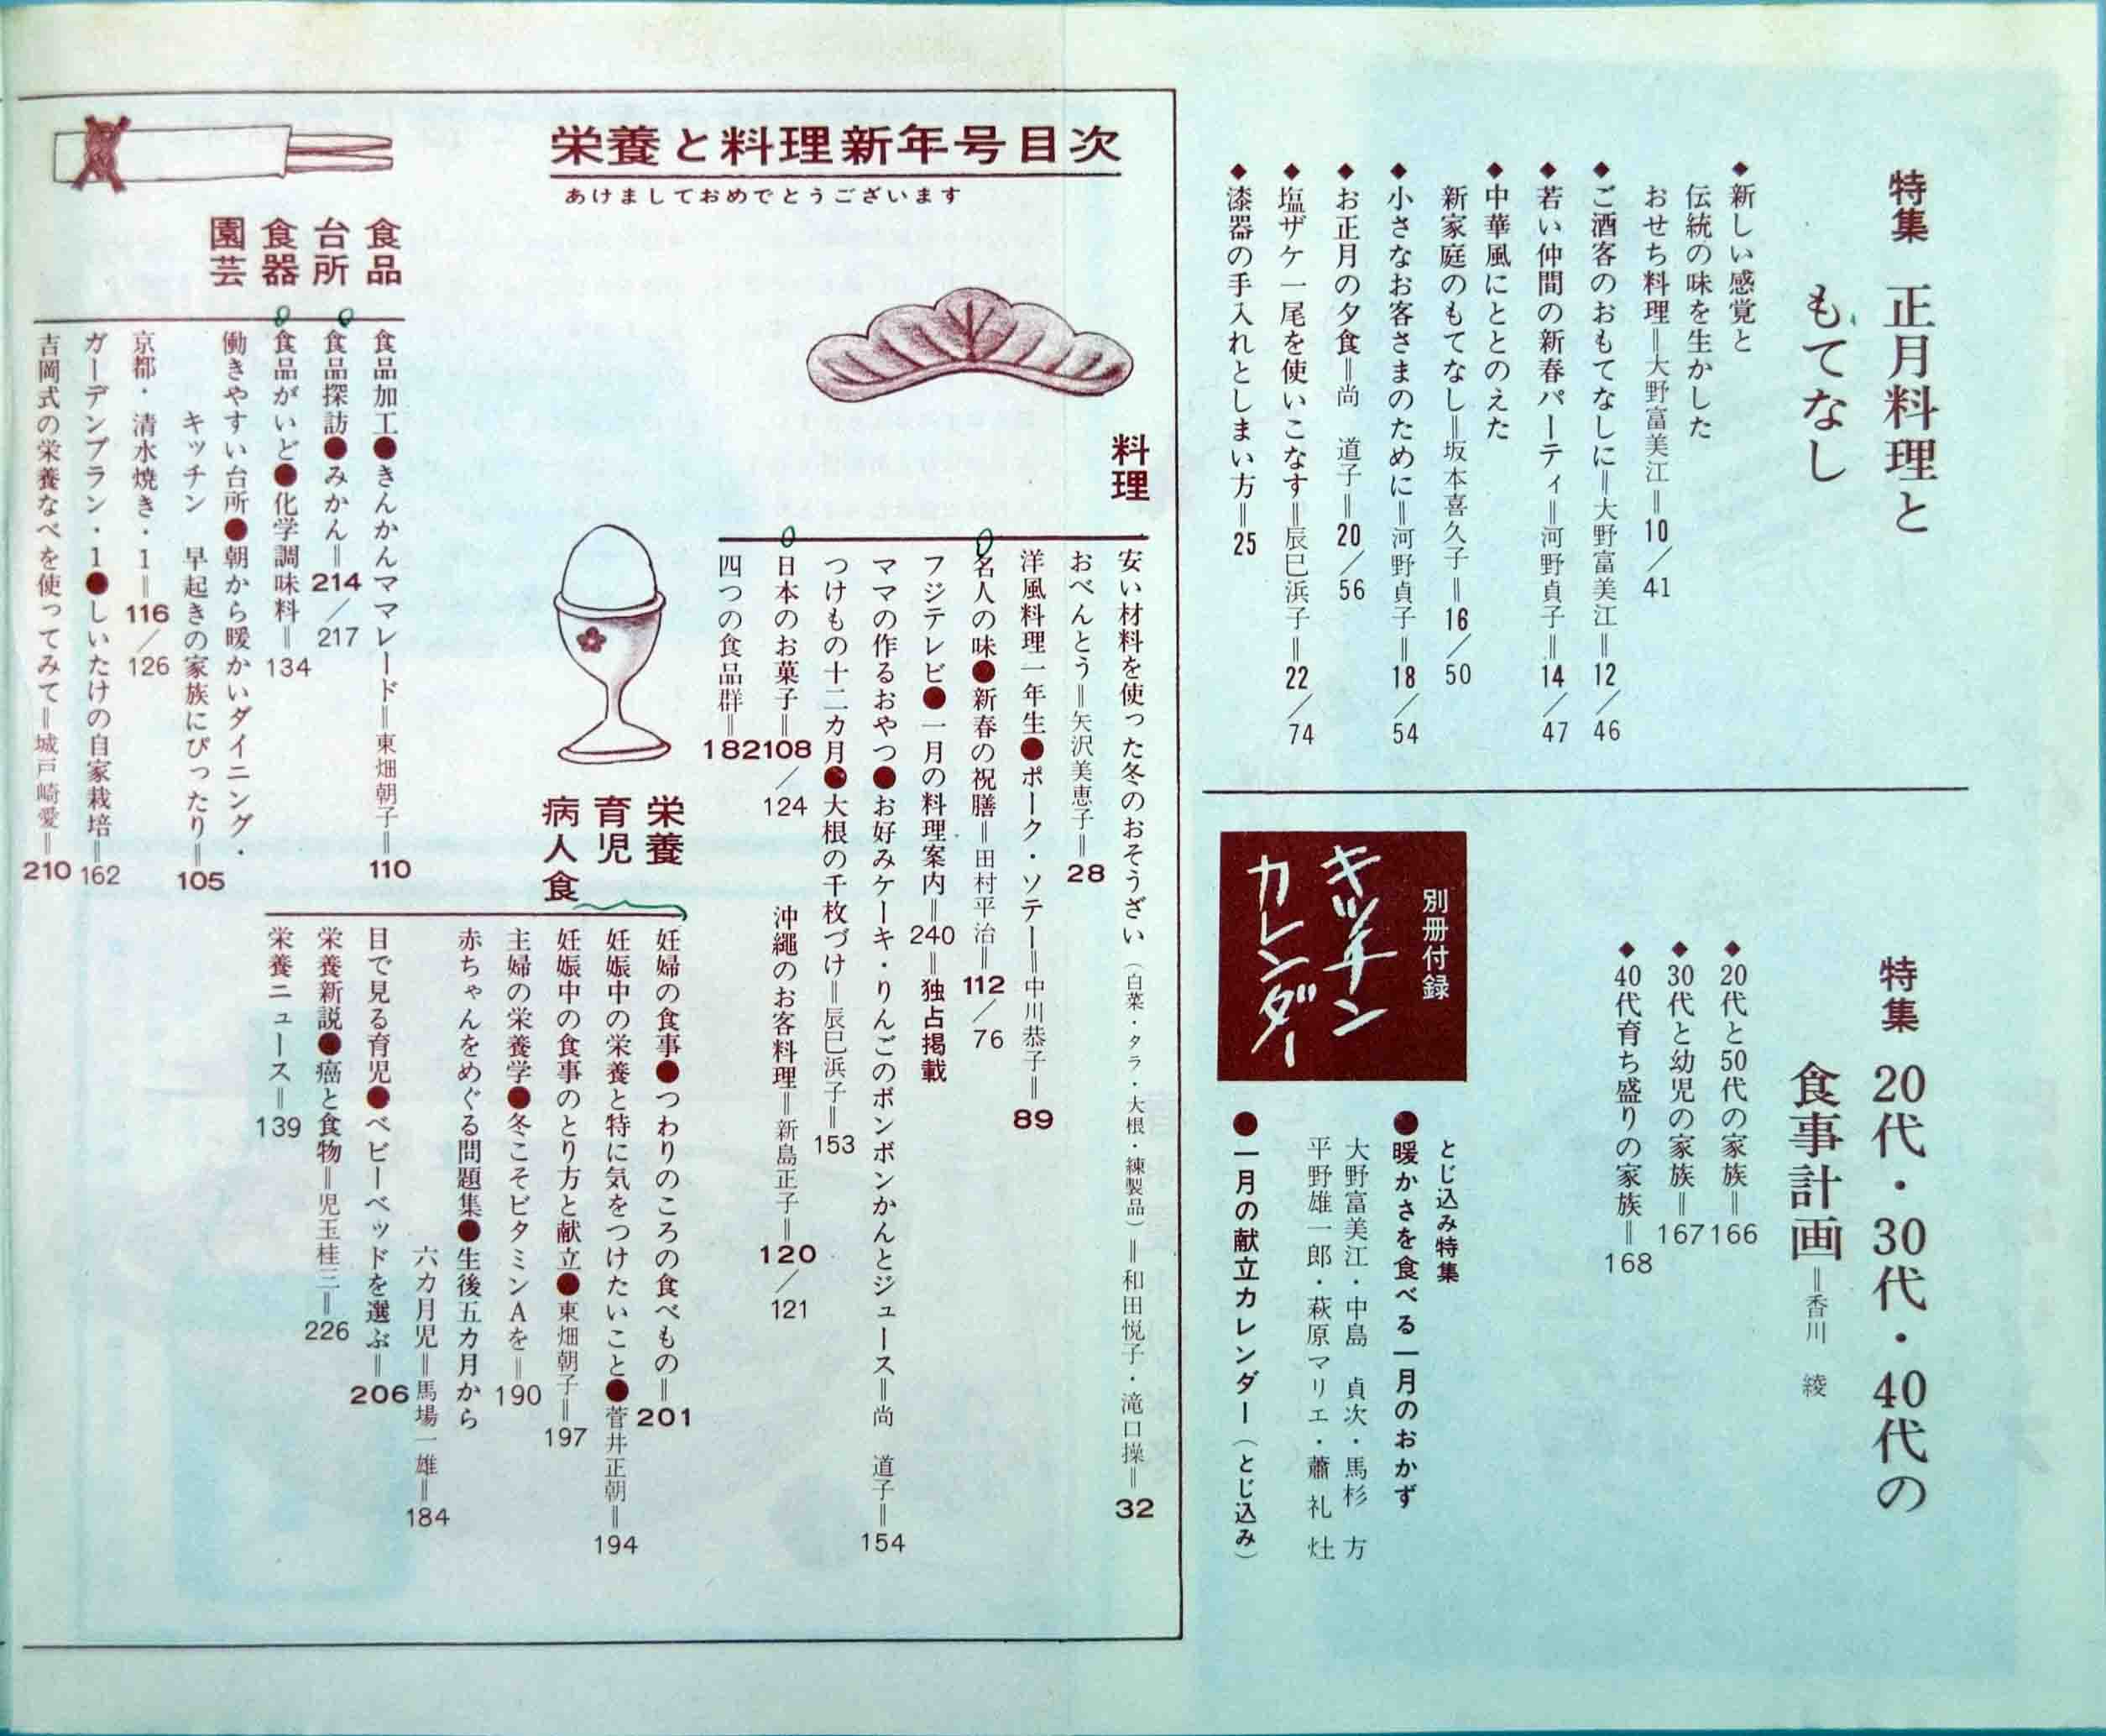 特集 正月料理と
もてなし
◆新しい感覚と
伝統の味を生かした
おせち料理＝大野富美江＝10／41
◆ご酒客のおもてなしに＝大野富美江＝12／46
◆若い仲間の新春パーティ＝河野貞子＝14／47
◆中華風にととのえた
新家庭のもてなし＝坂本喜久子＝16／50
◆小さなお客さまのために＝河野貞子＝18／54
◆お正月の夕食＝尚 道子＝20／56
◆塩ザケ一尾を使いこなす＝辰巳浜子＝22／74
◆漆器の手入れとしまい方＝25
特集 20代・30代・40代の
食事計画＝香川 綾
◆20代と50代の家族＝166
◆30代と幼児の家族＝167
◆40代育ち盛りの家族＝168
別冊付録
キッチン
カレンダー
とじ込み特集
●暖かさを食べる一月のおかず
大野富美江・中島 貞次・馬杉 方
平野雄一郎・萩原マリエ・蕭 礼 灶
●一月の献立カレンダー（とじ込み）
栄養と料理新年号目次
あけましておめでとうございます
料理
安い材料を使った冬のおそうざい（白菜・タラ・大根・練製品）＝和田悦子・滝口操＝32
おべんとう＝矢沢美恵子＝28
洋風料理一年生●ポーク・ソテー＝中川恭子＝89
名人の味●新春の祝膳＝田村平治＝112／76
フジテレビ●一月の料理案内＝240＝独占掲載
ママの作るおやつ●お好みケーキ・りんごのボンボンかんとジュース＝尚 道子＝154
つけもの十二カ月●大根の千枚づけ＝辰巳浜子＝153
日本のお菓子＝108／124
沖縄のお客料理＝新島正子＝120／121
四つの食品群＝182
栄養
育児
病人食
妊婦の食事●つわりのころの食べもの＝201
妊娠中の栄養と特に気をつけたいこと●菅井正朝＝194
妊娠中の食事のとり方と献立●東畑朝子＝197
主婦の栄養学●冬こそビタミンAを＝190
赤ちゃんをめぐる問題集●生後五カ月から
六カ月児＝馬場一雄＝184
目で見る育児●ベビーベッドを選ぶ＝206
栄養新説●癌と食物＝児玉桂三＝226
栄養ニュース＝139
食品
台所
食器
園芸
食品加工●きんかんママレード＝東畑朝子＝110
食品探訪●みかん＝214／217
食品がいど●化学調味料＝134
働きやすい台所●朝から暖かいダイニング・
キッチン 早起きの家族にぴったり＝105
京都・清水焼き・1＝116／126
ガーデンプラン・1●しいたけの自家栽培＝162
吉岡式の栄養なべを使ってみて＝城戸崎愛＝210